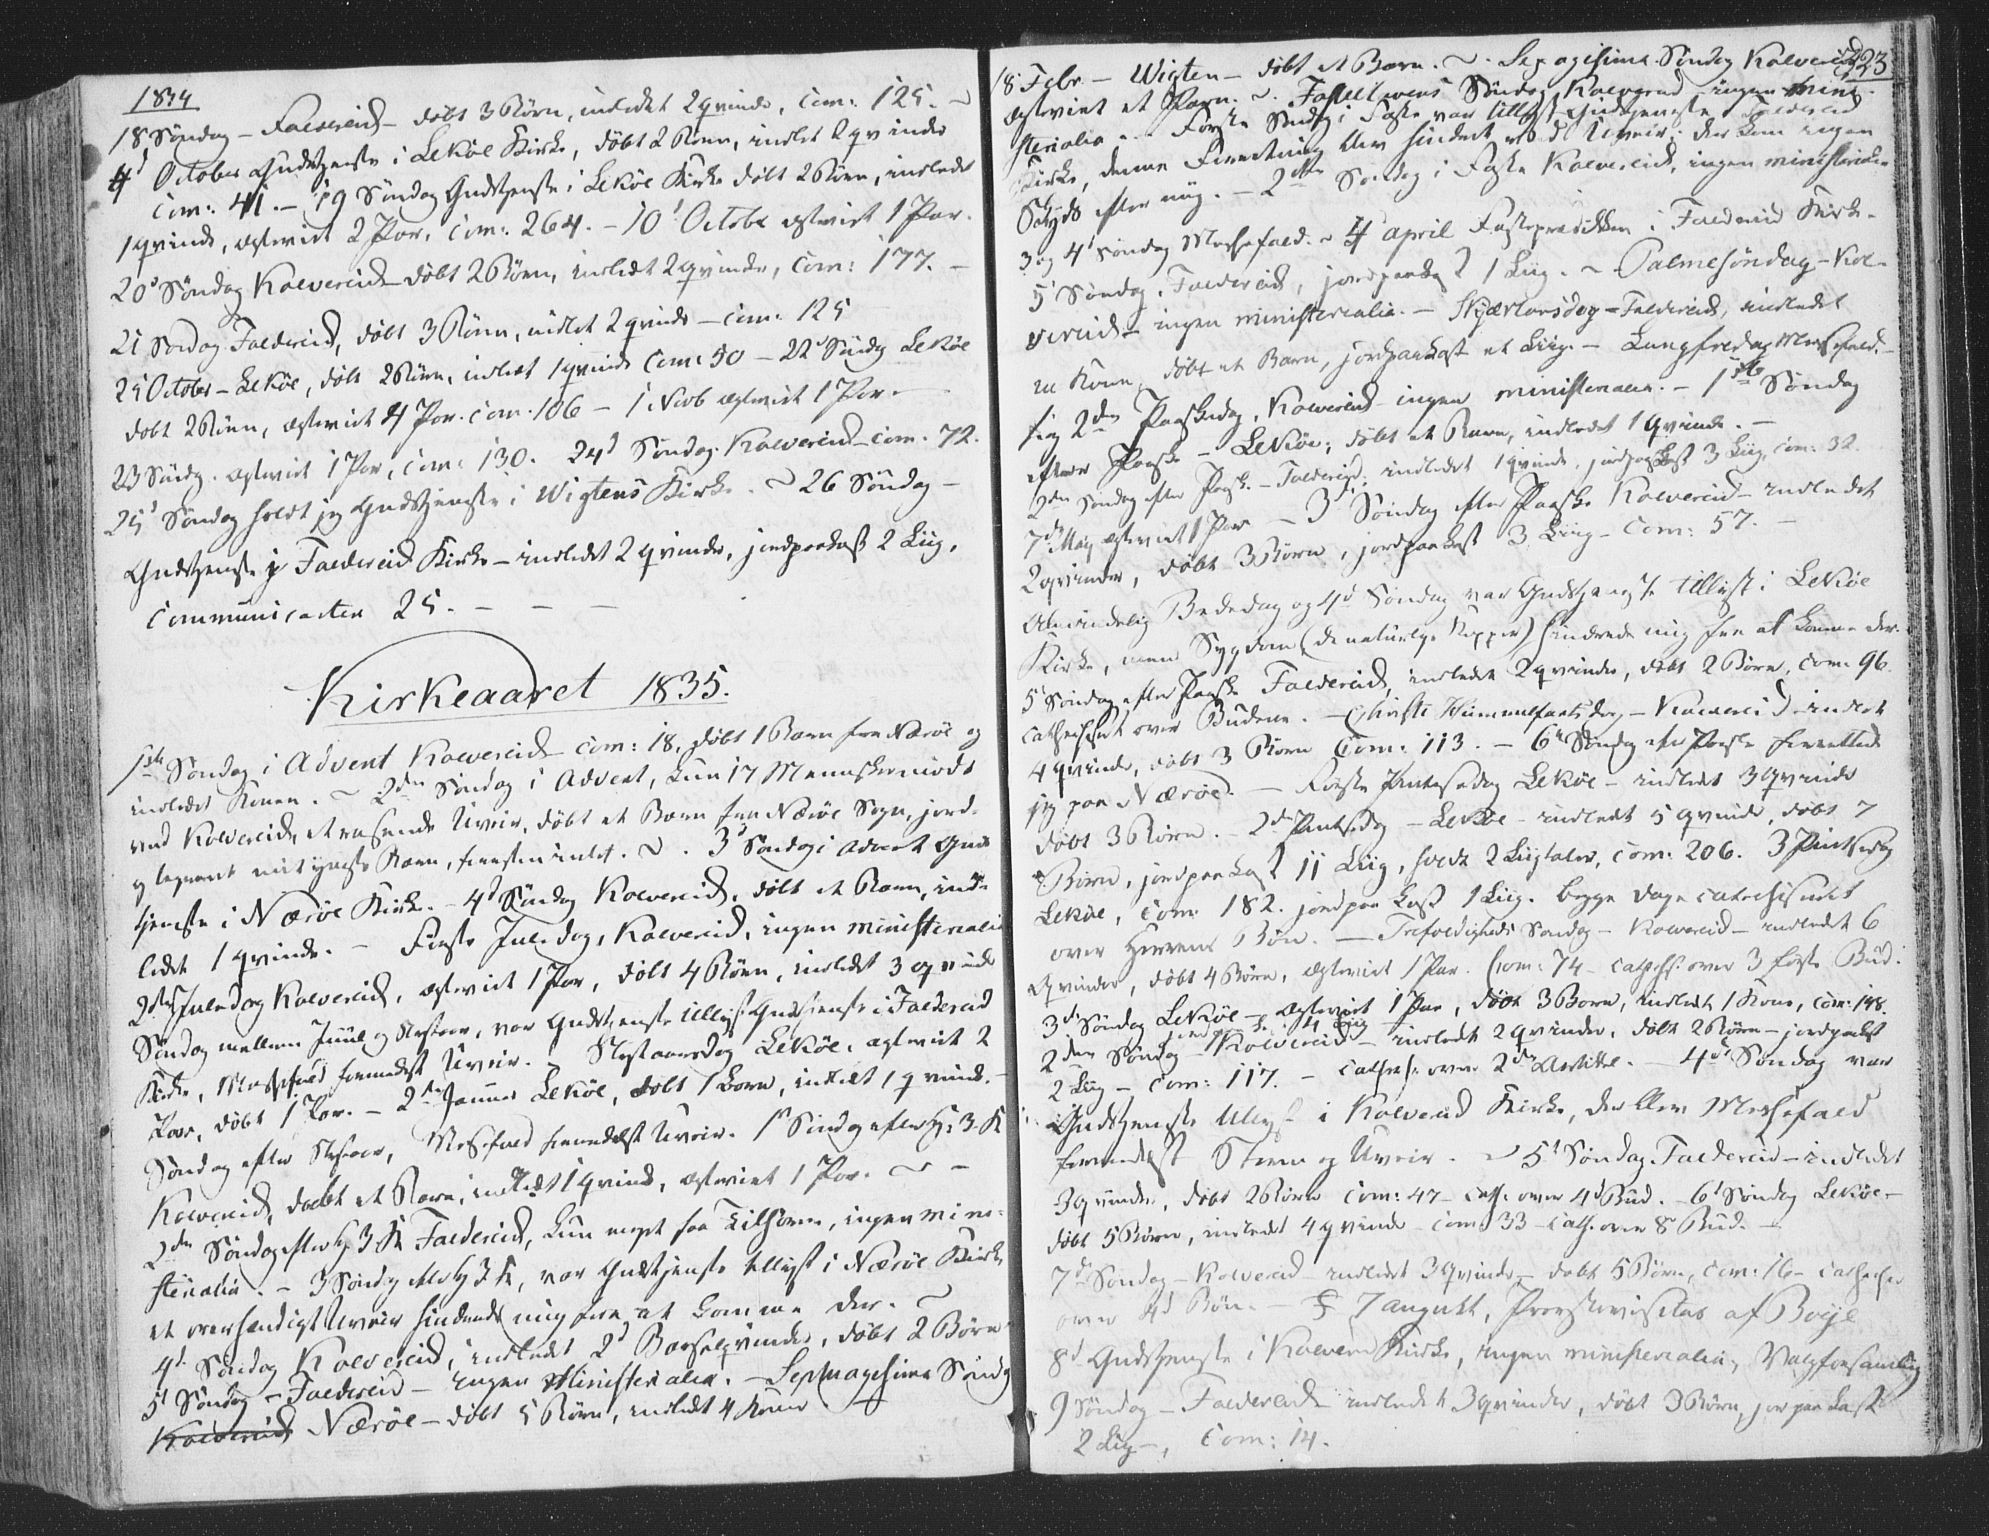 1834
18 Søndag – Foldereid – døbt 3 Børn, indledt 2 qvinder, Com: 125. –
4d October Gudstjeneste i Lekøe Kirke, døbt 2 Børn, indledt 2 qvinder
Com: 41. – 19 Søndag Gudstjeneste i Lekøe Kirke døbt 2 Børn, indledt
1 qvinde, egteviet 2 Par, Com: 264. – 10d Octobr egteviet 1 Par.
20d Søndag Kolvereid døbt 2 Børn, indledt 2 qvinder, Com: 177. –
21 Søndag Foldereid, døbt 3 Børn, indledt 2 qvinder – Com: 125
25 October – Lekøe, døbt 2 Børn, indledt 1 qvinde Com: 50 – 22d Søndag Lekøe
døbt 2 Børn, egteviet 4 Par. Com. 106 – 1 Novb egteviet 1 Par. –
23 Søndg. egteviet 1 Par, Com: 130. 24d Søndag Kolvereid Com. 72.
25d Søndag holdt jeg Gudstjeneste i Wigtens Kirke. ~ 26 Søndag –
Gudstjeneste i Foldereid Kirke – indledt 2 qvinder, jordpaakast 2 Liig,
Communicanter 25. – – –
Kirkeaaret 1835.
1ste Søndag i Advent Kolvereid Com: 18, døbt 1 Barn fra Nærøe og
indledt Konen. ~ 2den Søndag i Advent, kun 17 Mennesker mødt
ved Kolvereid, et rasende Uveir, døbt et Barn fra Nærøe Sogn, jord-
og begravet mit yngste Barn, . ~ . 3d Søndag i Advent Guds
tjeneste i Nærøe Kirke. – 4d Søndag Kolvereid, døbt et Barn, ind-
ledt 1 qvinde. – Første Juledag, Kolvereid, ingen ministerialia
2den Juledag Kolvereid, egteviet 1 Par, døbt 4 Børn, indledt 3 qvinder
Søndag mellem Juul og Nytaar, var Gudstjeneste tillyst i Foldereid
Kirke, Messefald formedelst Uveir. – Nytaarsdag Lekøe, egteviet 2
Par, døbt 1 Par. – 2den Januar Lekøe, døbt 1 Barn, indledt 1 qvinde. –
Søndag efter Nytaar, Messefald formedelst Uveir. 1st Søndag efter H: 3 K
Kolvereid, døbt et Barn, indledt 1 qvinde, egteviet 1 Par. ~ –
2den Søndag efter H 3 K Foldereid, kun meget faa Tilhørere, ingen mini-
sterialia. – 3 Søndag efter H 3 K, var Gudstjeneste tillyst i Nærøe Kirke
et overhændigt Uveir hindrede mig fra at komme der. ~
4d Søndag Kolvereid, indledt 2d Barselqvinder, døbt 2 Børn
5d Søndag – Foldereid – ingen Ministerialia. – Septuagesima Søndg
Kolvereid Nærøe – døbt 5 Børn, indledt 4 Koner
223
18 Febr – Wigten – døbt et Barn. ~ . Sexagesima Søndag Kolvereid
egteviet et Par. ~ . Fastelavens Søndag Kolvereid ingen mini-
sterialia – . Første Søndag i Faste var tillyst Gudstjeneste Foldereid
Kirke, denne Forretning blev hindret ved Uveir. der kom ingen
Skyds efter mig. – 2den Søndag i Faste Kolvereid, ingen ministerialia
3 og 4d Søndag Messefald. ~ 4 april Fasteprædiken i Foldereid Kirke.
5d Søndag. Foldereid, jordpaakast 1 Liig. ~ Palmesøndag – Kol-
vereid – ingen ministerialia. – Skjærtorsdag – Foldereid, indledt
en Kone, døbt et Barn, jordpaakast et Liig – Langfredag Messefald. –
2den Paaskedag, Kolvereid ingen ministerialia. – 1ste Søndag
efter Paaske – Lekøe, døbt et Barn, indledt 1 qvinde. –
2den Søndag efter Paask. – Foldereid, indledt 1 qvinde, jordpaakast 3 Liig, Com: 32.
7d Maj egteviet 1 Par – 3d Søndag efter Paaske Kolvereid – indledt
2 qvinder, døbt 3 Børn, jordpaakast 3 Liig – Com: 57. –
Almindelig Bededag og 4d Søndag var Gudstjeneste tillyst i Lekøe
Kirke, men Sygdom (de naturlige Kopper) hindrede mig fra at komme der.
5d Søndag efter Paaske Foldereid, indledt 2 qvinder, døbt 2 Børn, Com: 96.
Catheciseret over Budene. – Christi Himmelfartsdag – Kolvereid – indledt
4 qvinder, døbt 3 Børn Com: 113. – 6te Søndag efter Paaske forrettede
jeg paa Nærøe. – Første Pintsedag Lekøe – indledt 3 Qvinder
døbt 3 Børn. – 2d Pintsedag – Lekøe – indledt 5 qvinder, døbt 7
Børn, jordpaakast 11 Liig, holdt 2 Liigtaler, Com: 206. 3 Pintsedag
Lekøe, Com 182. jordpaakast 1 Liig. begge Dage catechiseret
over Herrens Bøn. – Trefoldigheds Søndag – Kolvereid – indledt 6
qvinder, døbt 4 Børn, egteviet 1 Par. Com: 74 – catechs. over 3 første Bud.
3d Søndag Lekøe – egteviet 1 Par, døbt 3 Børn, indledt 1 Kone, Com: 148.
2den Søndag – Kolvereid – indledt 2 qvinder, døbt 2 Børn – jordpaakast
2 Liig – Com: 117. – Cathech: over 2den Artikel. – 4de Søndag var
Gudstjeneste tillyst i Kolvereid Kirke, der blev Messefald
formedelst Storm og Uveir. ~ 5d Søndag. Foldereid – indledt
3 qvinder, døbt 2 Børn Com: 47 – Cath. over 4d Bud. – 6d Søndag Lekøe –
døbt 5 Børn, indledt 4 qvinder – Com 33 – Cath. over 8 Bud. –
7de Søndag – Kolvereid – indledt 3 Qvinder – døbt 5 Børn, Com: 16 – Catheches
over 4d Bøn. – 7 august, Provstevisitas af Boye
8d Gudstjeneste i Kolvereid Kirke, ingen ministerialia, Valgforsamling
9 Søndag – Foldereid indledt 3 qvinder, døbt 3 Børn, jordpaakast
2 Liig –, Com: 14.